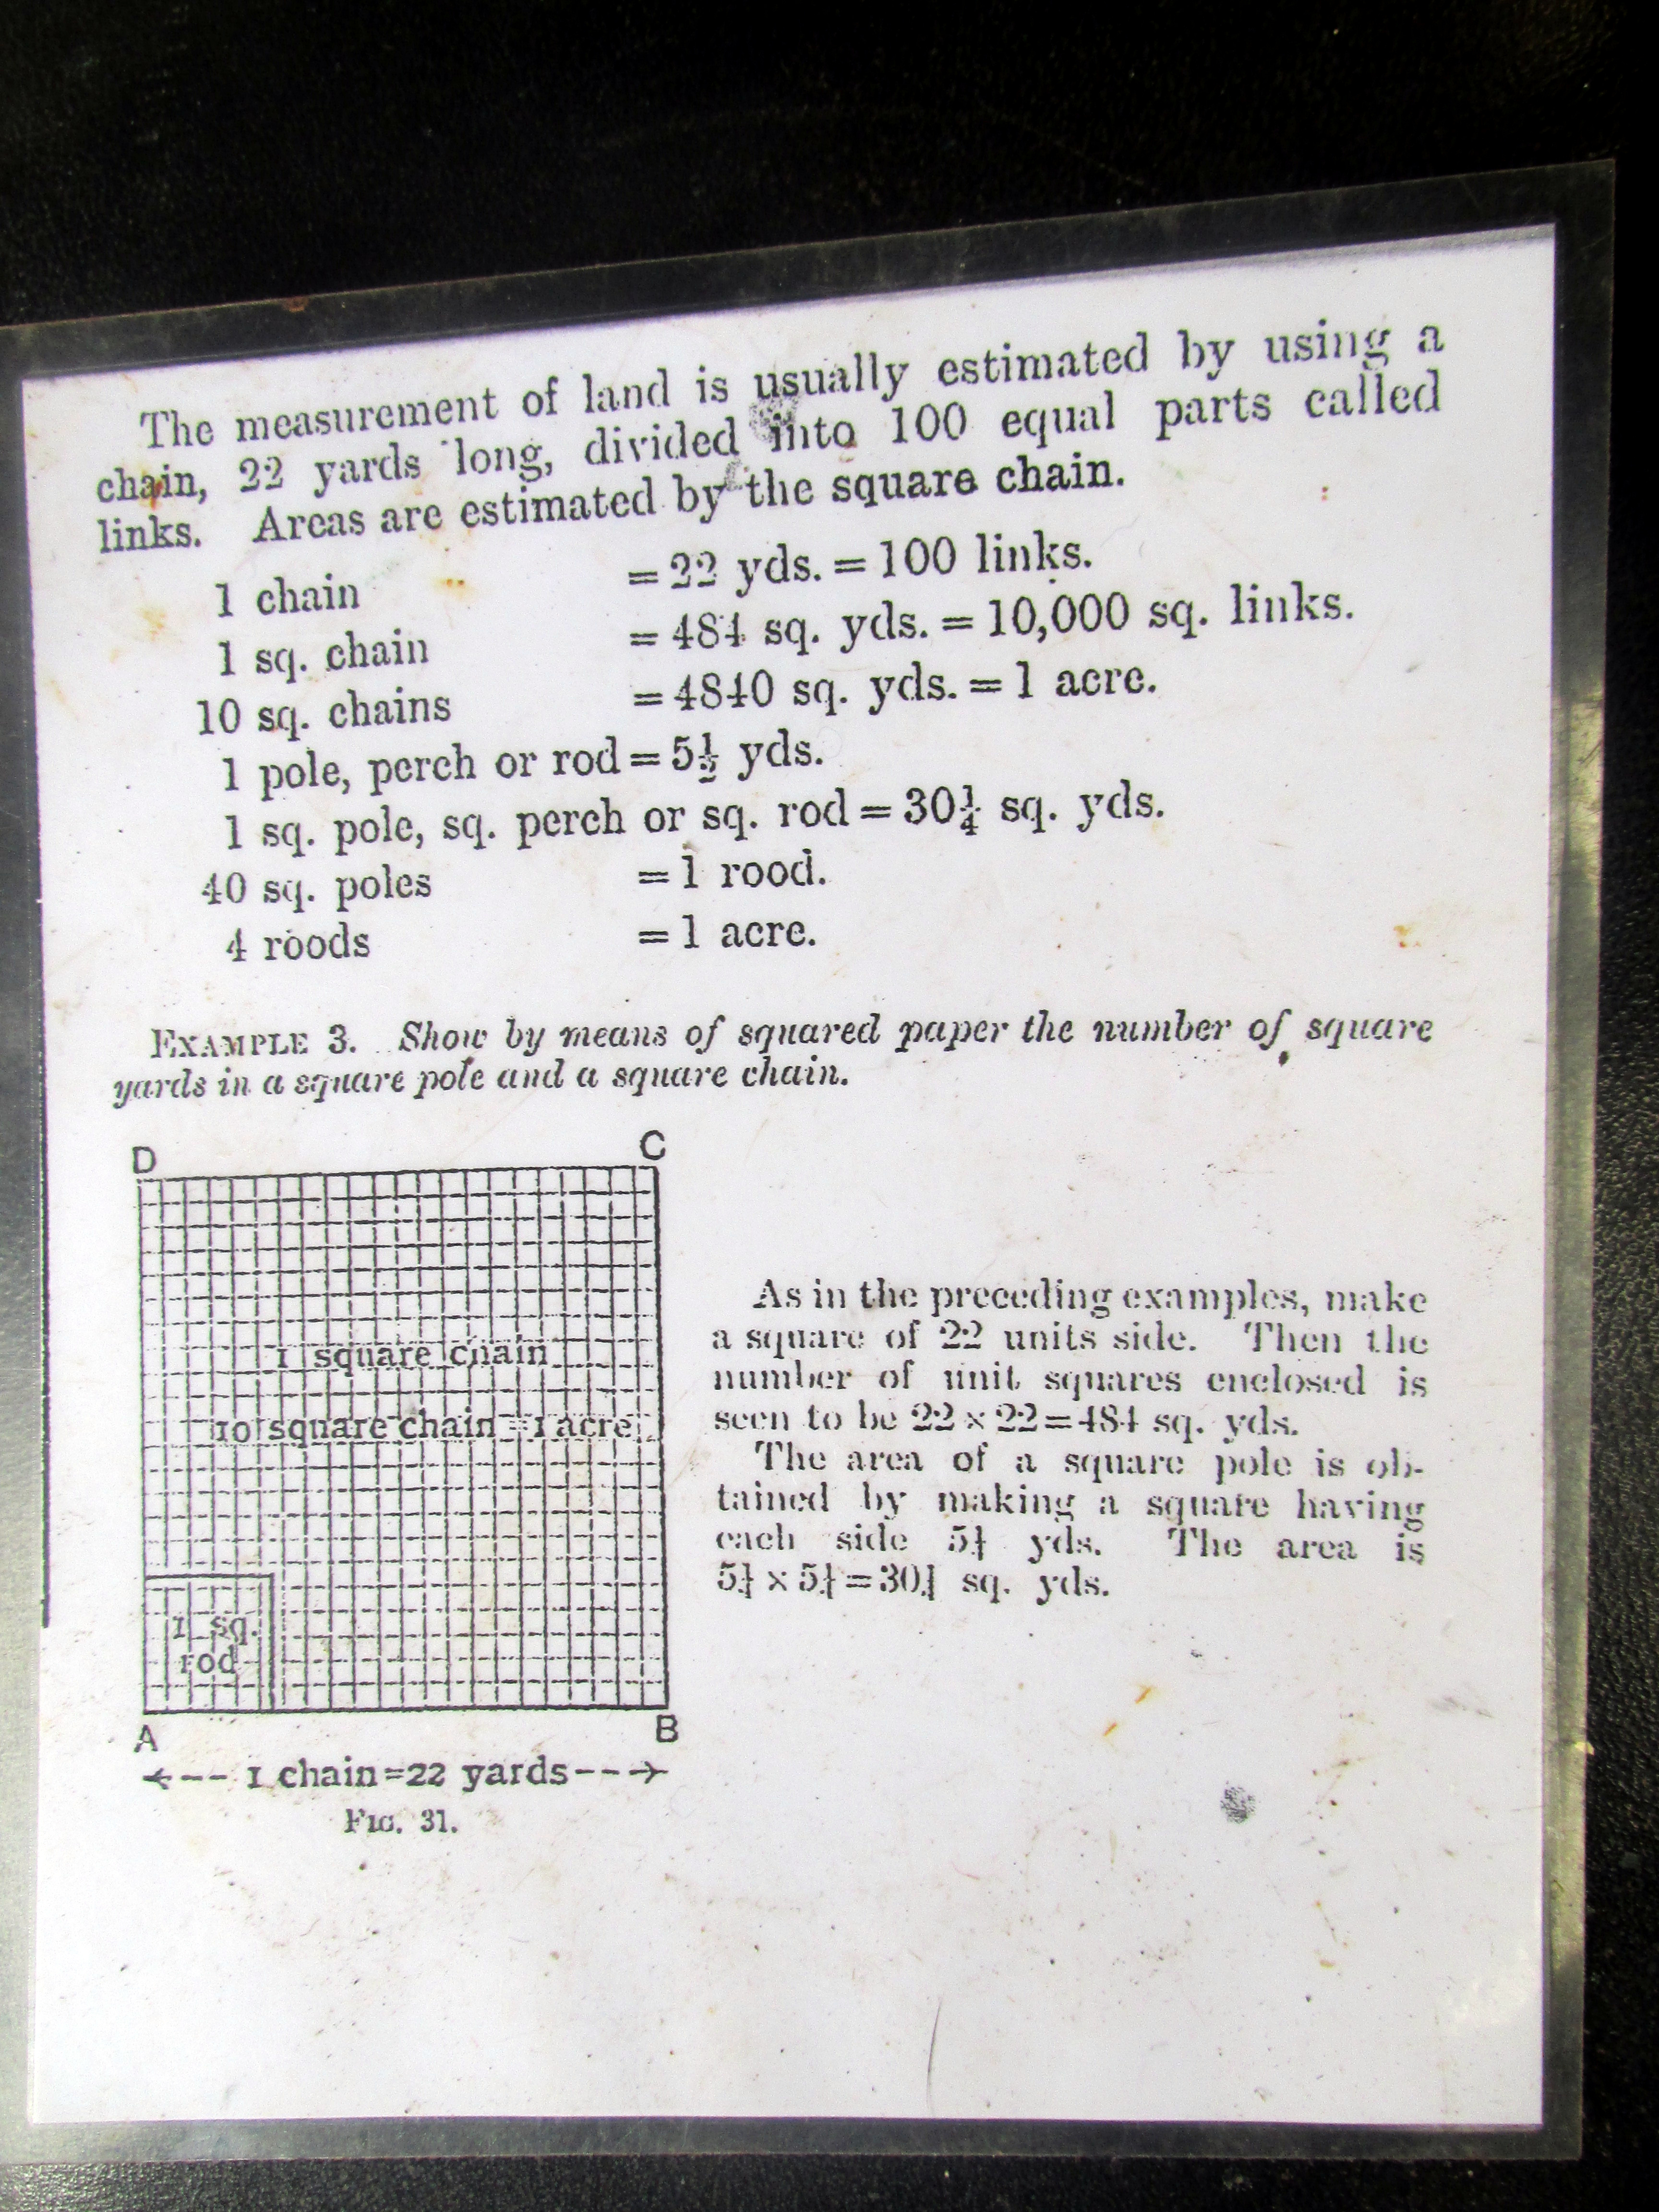 The measurement of land is usually estimated by using a
chain, 22 yards long, divided into 100 equal parts called
links. Areas are estimated by the square chain.
1 chain = 22 yds. = 100 links.
1 sq. chain = 484 sq. yds. = 10,000 sq. links.
10 sq. chains = 4840 sq. yds. = 1 acre.
1 pole, perch or rod = 5½ yds.
1 sq. pole, sq. perch or sq. rod = 30¼ sq. yds.
40 sq. poles = 1 rood.
4 roods = 1 acre.
EXAMPLE 3. Show by means of squared paper the number of square
yards in a square pole and a square chain.
D C
1 square chain
10 square chain = 1 acre
1 sq.
rod
A B
1 chain=22 yards
FIG. 31.
As in the preceding examples, make
a square of 22 units side. Then the
number of unit squares enclosed is
seen to be 22 × 22 = 484 sq. yds.
The area of a square pole is ob-
tained by making a square having
each side 5½ yds. The area is
5½ × 5½ = 30¼ sq. yds.